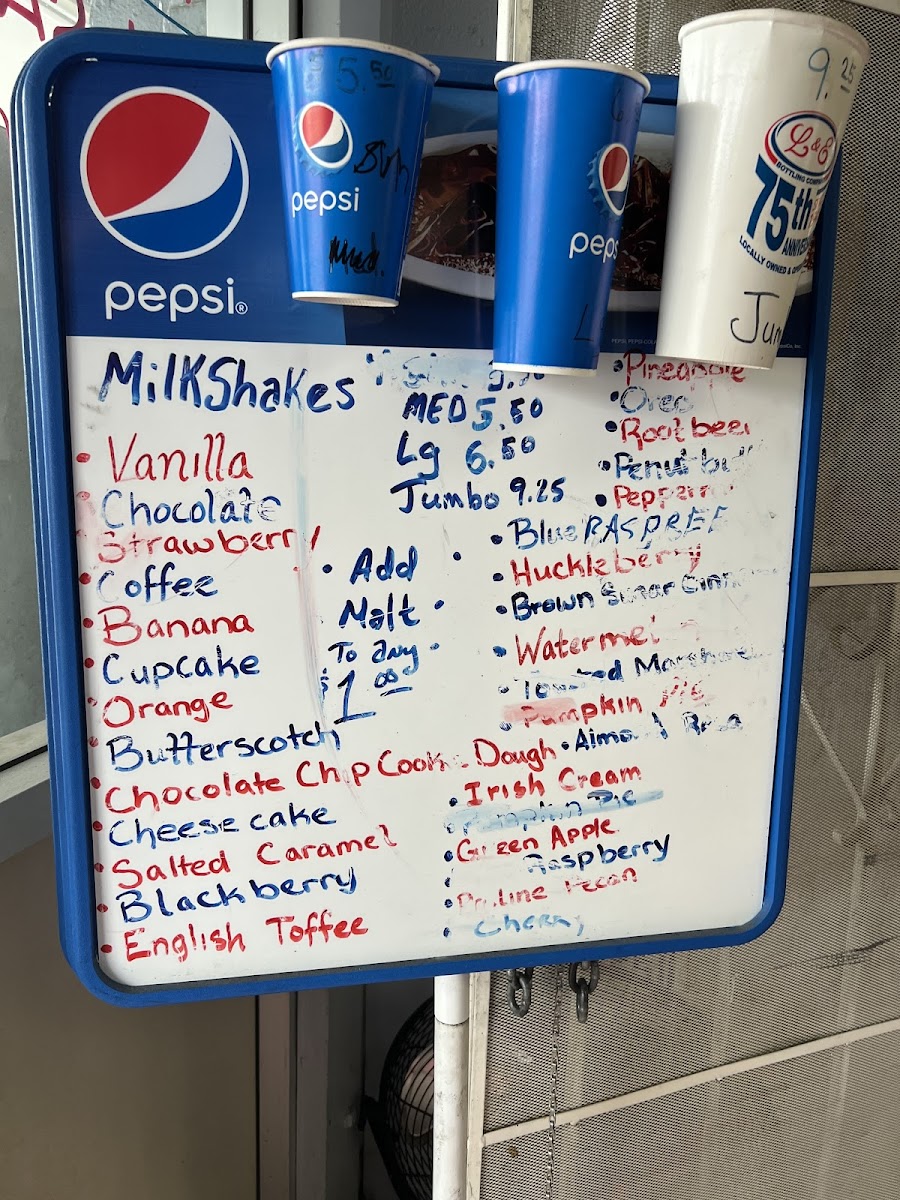 5.50
pepsi
med.
pepsi
L
9.25
L&E
BOTTLING COMPANY
75th
LOCALLY OWNED &
Jum
pepsi®
MilKShakes
MED 5.50
Lg 6.50
Jumbo 9.25
• Add •
Malt •
To any •
$1.00
• Vanilla
• Chocolate
Strawberry
• Coffee
• Banana
• Cupcake
• Orange
• Butterscotch
• Chocolate Chip Cook Dough
• Cheese cake
• Salted Caramel
• Blackberry
• English Toffee
• Pineapple
• Oreo
• Root beer
• Penut but
• Pepperm
• Blue RASPBEE
• Huckleberry
• Brown Sugar Cinn
• Watermel
• Toasted Marsh
• Pumpkin Pie
• Almo d Roca
• Irish Cream
• Pumpkin Pie
• Green Apple
Raspberry
• Praline Pecan
• Cherry